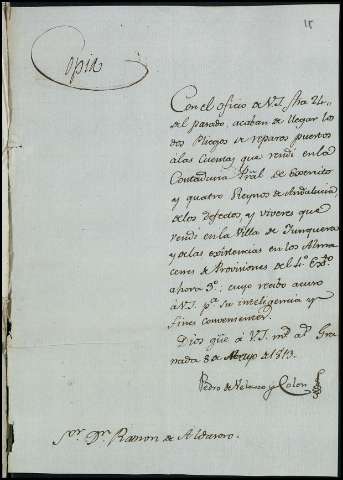 18
Copia
Con el oficio de V.S. fha 24,,
del pasado, acaban de llegar los
dos Pliegos de reparos puestos
a las Cuentas que rendi en la
Contaduria Pral de Exercito
y quatro Reynos de Andalucia,
de los efectos, y viveres que
rendi en la Villa de Junquera
y de las existencias en los Alma
cenes de Provisiones del 4º Exto
ahora 3º; cuyo recibo aviso
à V.S. pa su inteligencia y
fines convenientes.
Dios güe à V.S. ms as Gra
nada 8 de de 1813.
Pedro de Velasco y Colon
Sor Dn Ramon de Aldasoro.